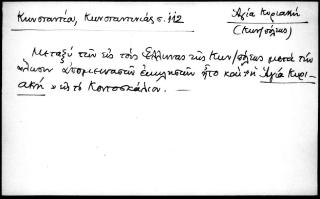 Κωνσταντία, Κωνσταντινιάς σ. 112
Ἁγία Κυριακή
(Κων/πόλεως)
Μεταξὺ τῶν εἰς τοὺς Ἕλληνας τῆς Κων/πόλεως μετὰ τὴν
ἅλωσιν ἀπομεινασῶν ἐκκλησιῶν ἦτο καὶ ἡ Ἁγία Κυρι-
ακὴ εἰς τὸ Κοντοσκάλιον. —